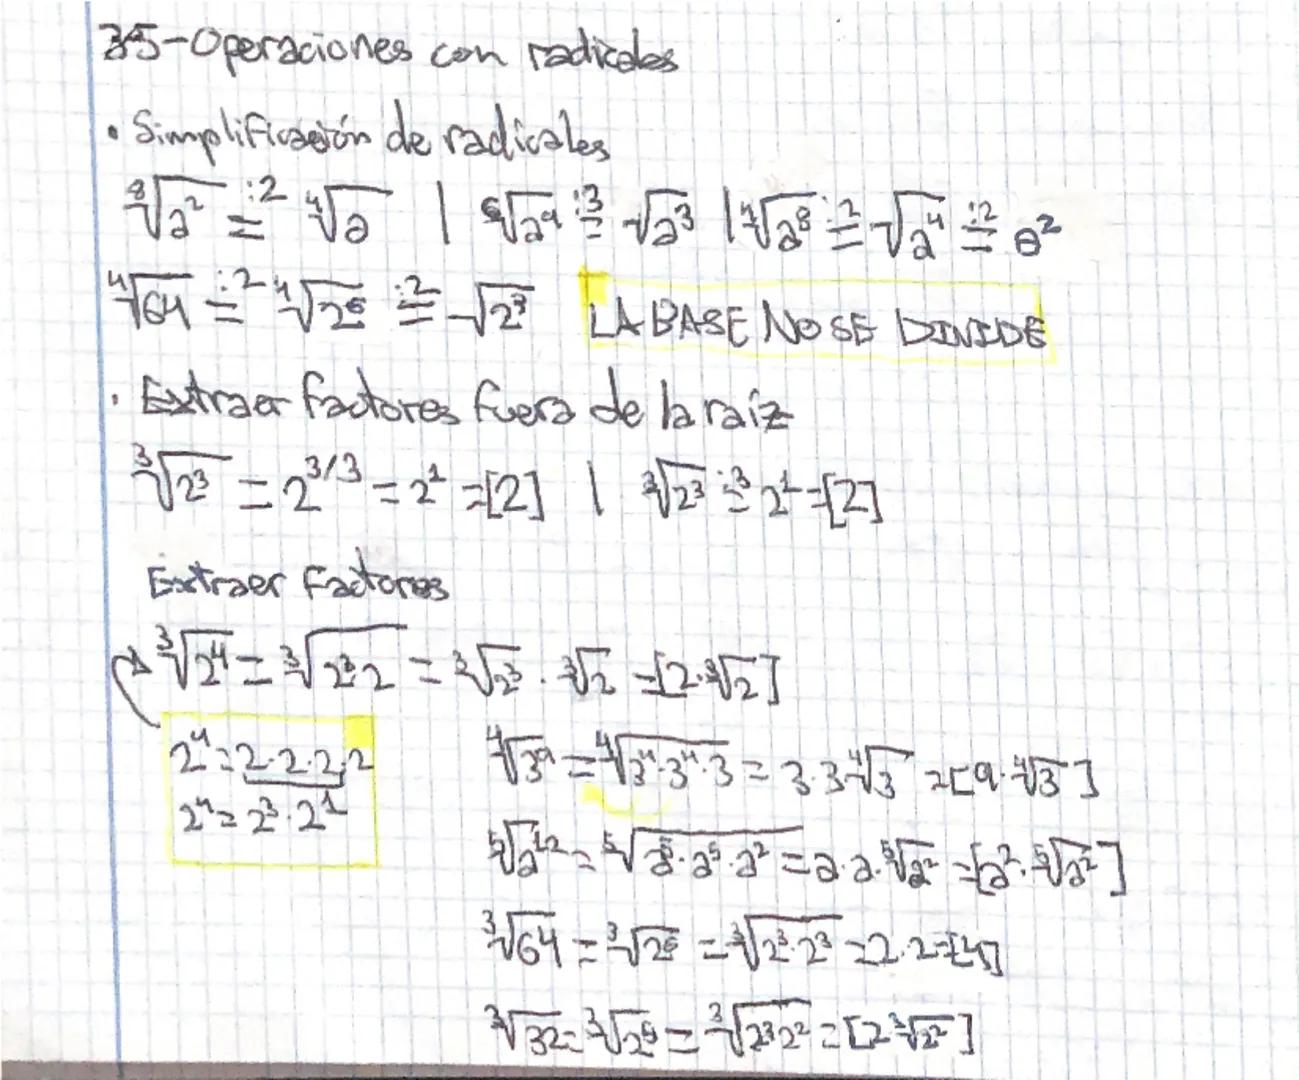 35-Operaciones con radicales
• Simplificación de radicales
⁸√a² =^{:2} ⁴√a | ⁶√a⁹ =^{:3} √a³ | ⁴√a⁸ =^{:2} √a⁴ =^{:2} a²
⁴√64 =^{:2} ⁴√2⁶ =^{:2} √2³ LA BASE NO SE DIVIDE
• Extraer factores fuera de la raíz
³√2³ = 2^{3/3} = 2¹ = [2] | ³√2³ =^{:3} 2¹ = [2]
Extraer factores
³√2⁴ = ³√2³·2 = ³√2³ · ³√2 = [2·³√2]
2⁴ = 2·2·2·2
2⁴ = 2³·2¹
⁴√3⁹ = ⁴√3⁴·3⁴·3 = 3·3 ⁴√3 = [9·⁴√3]
⁵√a¹² = ⁵√a⁵·a⁵·a² = a·a·⁵√a² = [a²·⁵√a²]
³√64 = ³√2⁶ = ³√2³·2³ = 2·2 = [4]
³√32 = ³√2⁵ = ³√2³2² = [2 ³√2²]